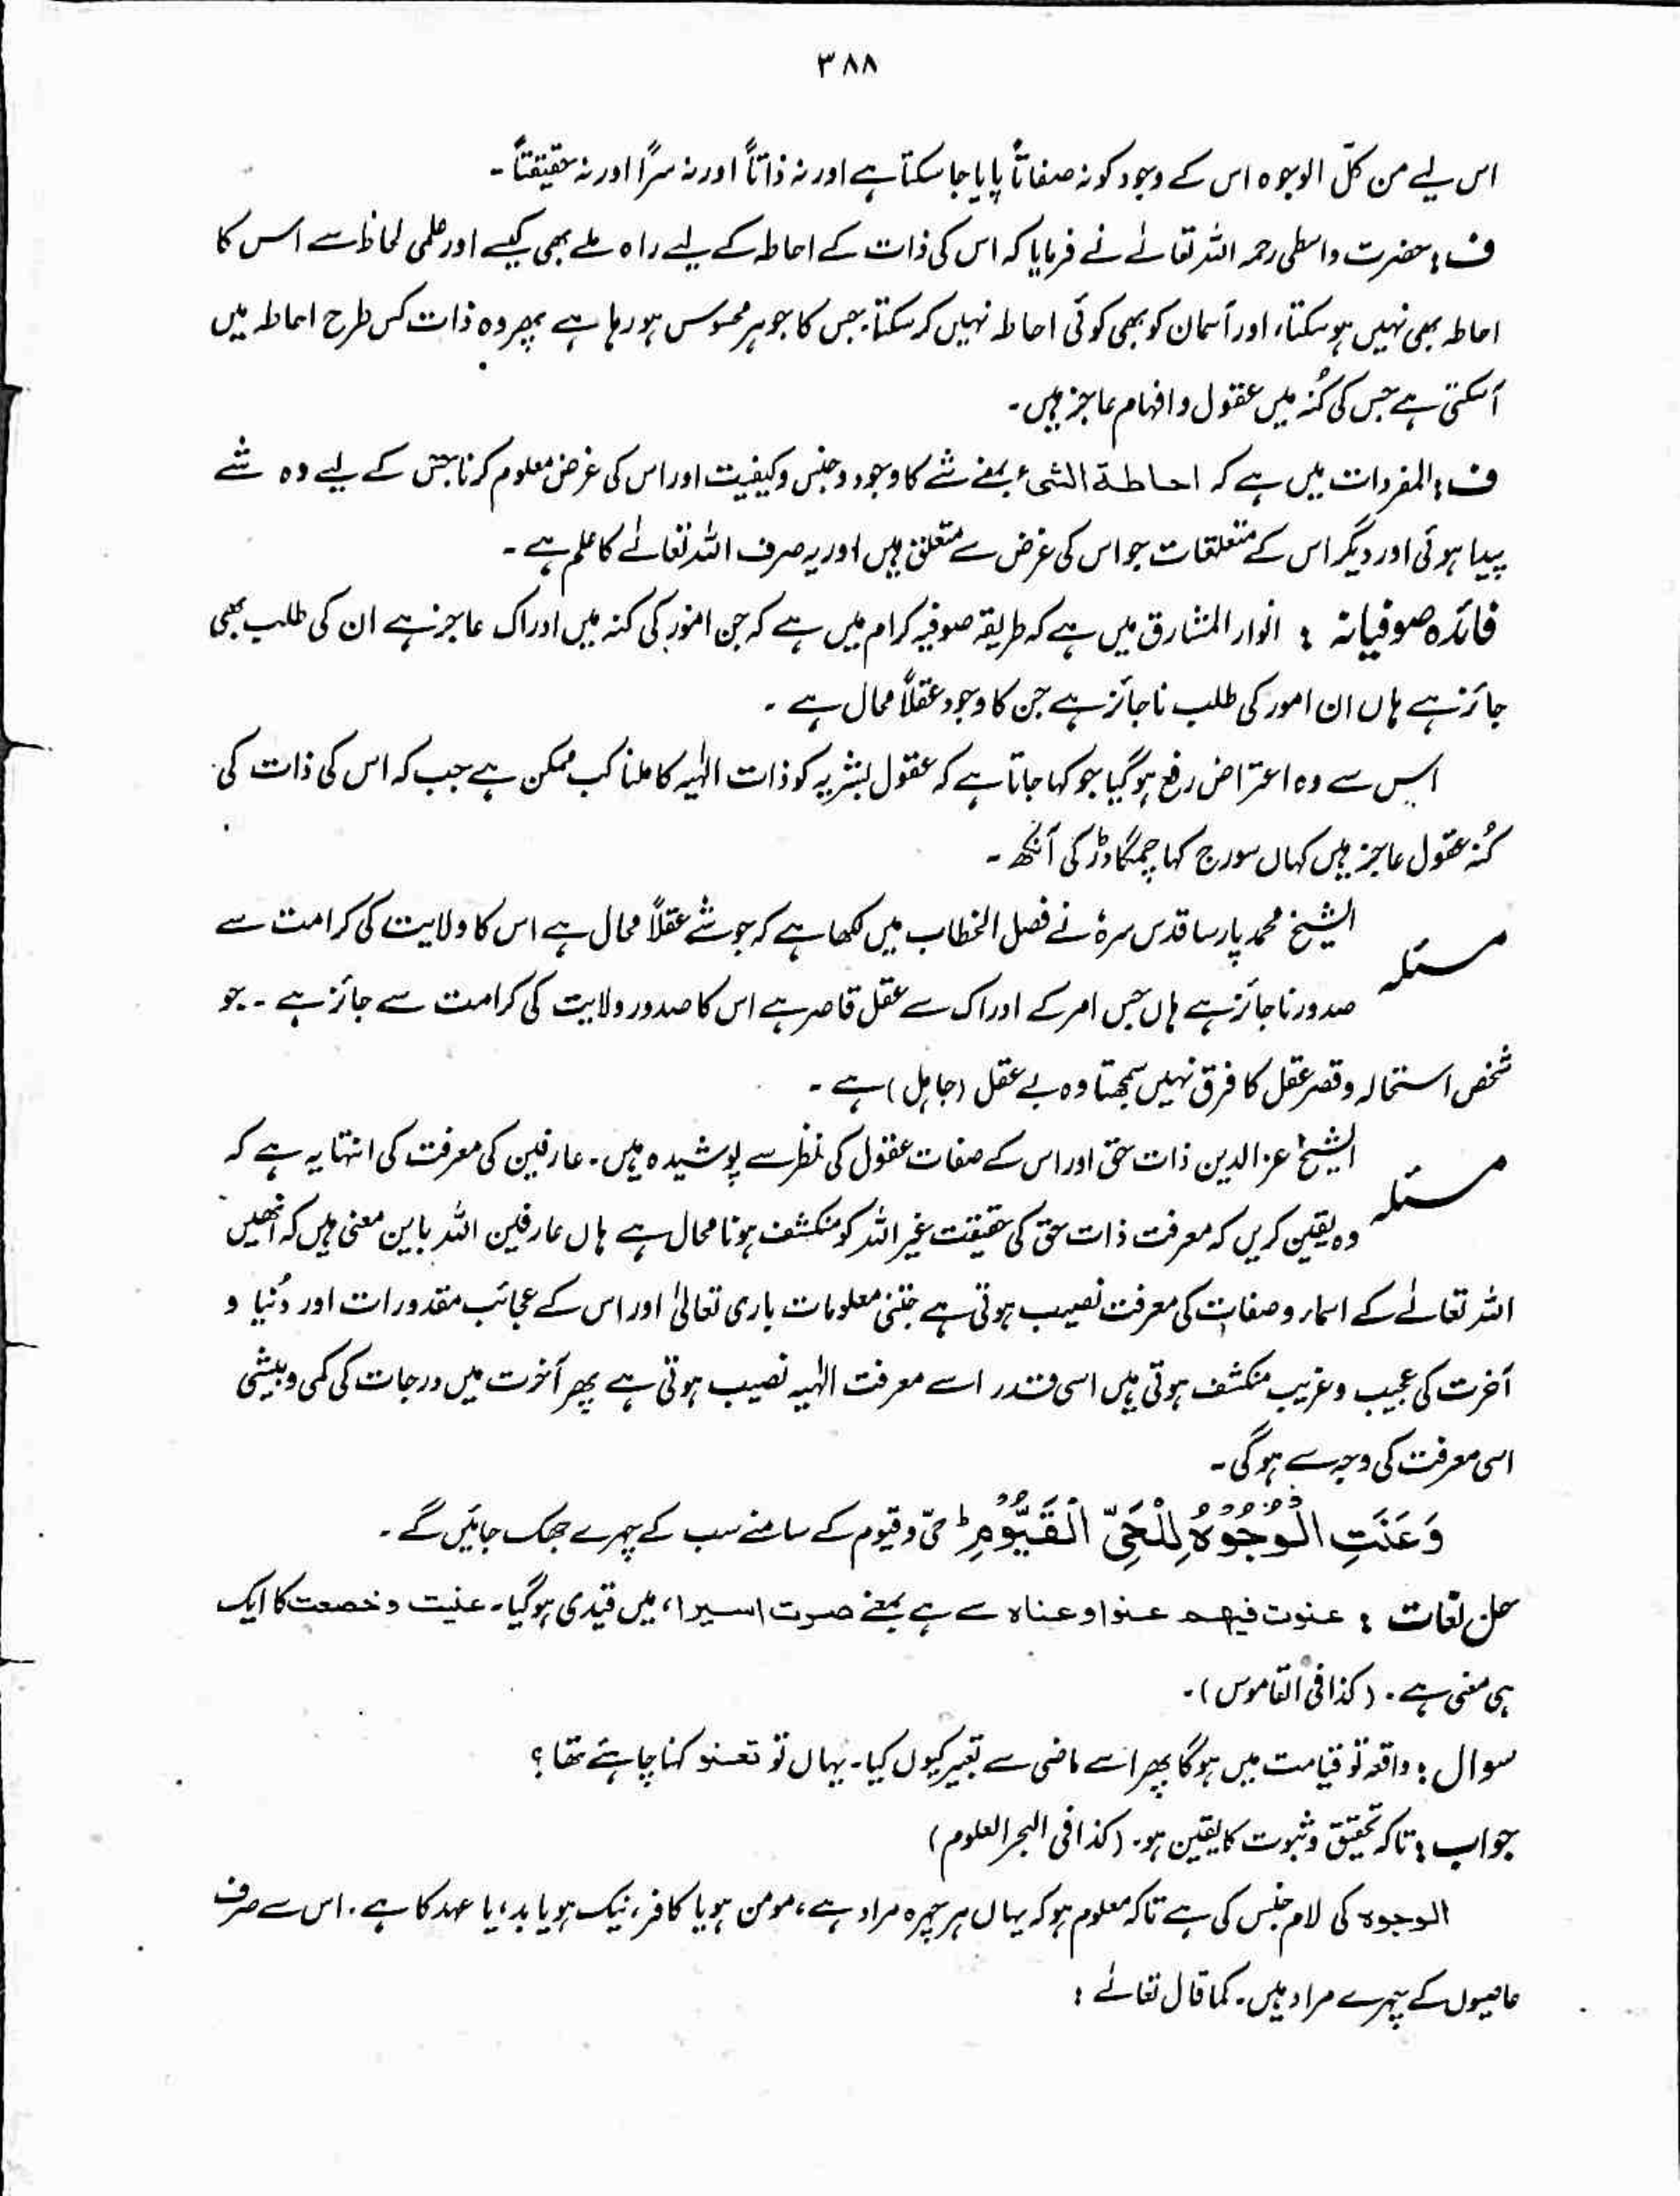 ۳۸۸
اس لیے من کلّ الوجوہ اس کے وجود کو نہ صفاتاً پایا جا سکتا ہے اور نہ ذاتاً اور نہ سرًّا اور نہ حقیقتاً ۔
ف : حضرت واسطی رحمہ اللہ تعالےٰ نے فرمایا کہ اس کی ذات کے احاطہ کے لیے راہ ملے بھی کیسے اور علمی لحاظ سے اس کا
احاطہ بھی نہیں ہو سکتا، اور آسمان کو بھی کوئی احاطہ نہیں کر سکتا، جس کا جوہر محسوس ہو رہا ہے پھر وہ ذات کس طرح احاطہ میں
آسکتی ہے جس کی کُنہ میں عقول و افہام عاجز ہیں ۔
ف : المفردات میں ہے کہ احاطۃ الشیء بمعنے شے کا وجود و جنس و کیفیت اور اس کی غرض معلوم کرنا جس کے لیے وہ شے
پیدا ہوئی اور دیگر اس کے متعلقات جو اس کی غرض سے متعلق ہیں اور یہ صرف اللہ تعالےٰ کا علم ہے ۔
فائدہ صوفیانہ : انوار المشارق میں ہے کہ طریقہ صوفیہ کرام میں ہے کہ جن امور کی کنہ میں ادراک عاجز ہے ان کی طلب بھی
جائز ہے ہاں ان امور کی طلب ناجائز ہے جن کا وجود عقلاً محال ہے ۔
اس سے وہ اعتراض رفع ہو گیا جو کہا جاتا ہے کہ عقول بشریہ کو ذات الٰہیہ کا ملنا کب ممکن ہے جب کہ اس کی ذات کی
کُنہ عقول عاجز ہیں کہاں سورج کہا چمگادڑ کی آنکھ ۔
مسئلہ الشیخ محمد پارسا قدس سرہٗ نے فصل الخطاب میں لکھا ہے کہ جو شے عقلاً محال ہے اس کا ولایت کی کرامت سے
صدور ناجائز ہے ہاں جس امر کے ادراک سے عقل قاصر ہے اس کا صدور ولایت کی کرامت سے جائز ہے ۔ جو
شخص استحالہ و قصر عقل کا فرق نہیں سمجھتا وہ بے عقل (جاہل) ہے ۔
مسئلہ الشیخ عزالدین ذات حق اور اس کے صفات عقول کی نظر سے پوشیدہ ہیں ۔ عارفین کی معرفت کی انتہا یہ ہے کہ
وہ یقین کریں کہ معرفت ذات حق کی حقیقت غیر اللہ کو منکشف ہونا محال ہے ہاں عارفین اللہ باین معنی ہیں کہ انھیں
اللہ تعالےٰ کے اسماء و صفات کی معرفت نصیب ہوتی ہے جتنی معلومات باری تعالیٰ اور اس کے عجائب مقدورات اور دُنیا و
آخرت کی عجیب و غریب منکشف ہوتی ہیں اسی قدر اسے معرفت الٰہیہ نصیب ہوتی ہے پھر آخرت میں درجات کی کمی و بیشی
اسی معرفت کی وجہ سے ہو گی ۔
وَعَنَتِ الْوُجُوْہُ لِلْحَیِّ الْقَیُّوْمِ ؕ حیّ و قیوم کے سامنے سب کے چہرے جھک جائیں گے ۔
حل لغات : عنوت فیھم عنوا و عناہ سے ہے بمعنے صرت اسیرا، میں قیدی ہو گیا ۔ عنیت و خصعت کا ایک
ہی معنی ہے ۔ (کذا فی القاموس) ۔
سوال : واقعہ تو قیامت میں ہو گا پھر اسے ماضی سے تعبیر کیوں کیا ۔ یہاں تو تعنو کہنا چاہئے تھا ؟
جواب : تاکہ تحقیق و ثبوت کا یقین ہو ۔ (کذا فی البحر العلوم)
الوجوہ کی لام جنس کی ہے تاکہ معلوم ہو کہ یہاں ہر چہرہ مراد ہے، مومن ہو یا کافر، نیک ہو یا بد، یا عہد کا ہے ۔ اس سے صرف
عاصیوں کے چہرے مراد ہیں ۔ کما قال تعالےٰ :